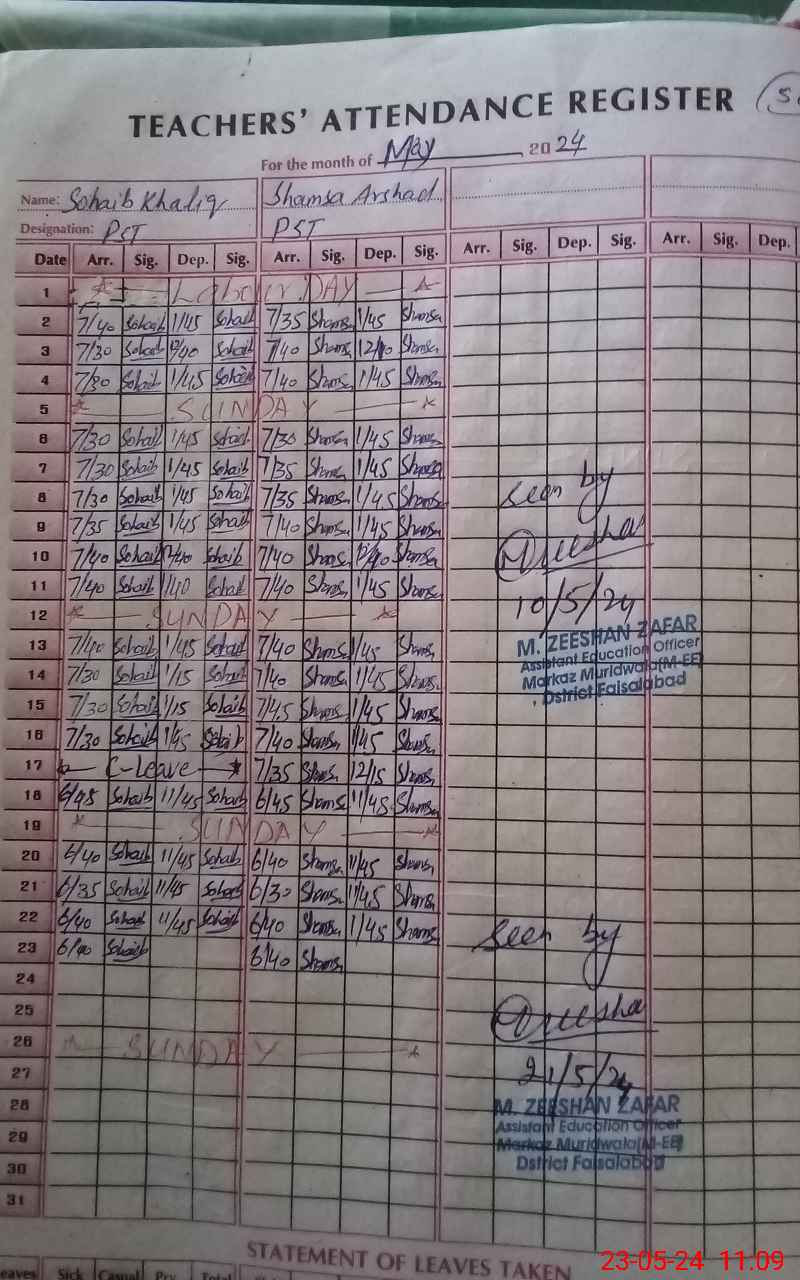 TEACHERS' ATTENDANCE REGISTER
For the month of May 2024
Name: Sohaib Khaliq Shamsa Arshad
Designation: PST PST
Date Arr. Sig. Dep. Sig. Arr. Sig. Dep. Sig. Arr. Sig. Dep. Sig. Arr. Sig. Dep.
1 Labour DAY
2 7/40 Sohaib 1/45 Sohaib 7/35 Shamsa 1/45 Shamsa
3 7/30 Sohaib 12/40 Sohaib 7/40 Shamsa Shamsa
4 7/30 Sohaib 1/45 Sohaib 7/40 Shamsa 1/45 Shamsa
5 SUNDAY
6 7/30 Sohaib 1/45 Sohaib 7/30 Shamsa 1/45 Shamsa
7 7/30 Sohaib 1/45 Sohaib 7/35 Shamsa 1/45 Shamsa
8 7/30 Sohaib 1/45 Sohaib 7/35 Shamsa 1/45 Shamsa
9 7/35 Sohaib 1/45 Sohaib 7/40 Shamsa 1/45 Shamsa
10 7/40 Sohaib 12/40 Sohaib 7/40 Shamsa Shamsa
11 7/40 Sohaib 1/40 Sohaib 7/40 Shamsa 1/45 Shamsa
12 SUNDAY
13 7/40 Sohaib 1/45 Sohaib 7/40 Shamsa 1/45 Shamsa
14 7/30 Sohaib 1/15 Sohaib 7/40 Shamsa 1/45 Shamsa
15 7/30 Sohaib 1/15 Sohaib 7/45 Shamsa 1/45 Shamsa
16 7/30 Sohaib 1/45 Sohaib 7/40 Shamsa 1/45 Shamsa
17 C-Leave 7/35 Shamsa 12/15 Shamsa
18 6/45 Sohaib 11/45 Sohaib 6/45 Shamsa 11/45 Shamsa
19 SUNDAY
20 6/40 Sohaib 11/45 Sohaib 6/40 Shamsa 11/45 Shamsa
21 6/35 Sohaib 11/45 Sohaib 6/30 Shamsa 11/45 Shamsa
22 6/40 Sohaib 11/45 Sohaib 6/40 Shamsa 1/45 Shamsa
23 6/40 Sohaib 6/40 Shamsa
24
25
26 SUNDAY
27
28
29
30
31
seen by
10/5/24
M. ZEESHAN ZAFAR
Assistant Education Officer
Markaz Muridwala(M-EE)
Dstrict Faisalabad
seen by
21/5/24
M. ZEESHAN ZAFAR
Assistant Education Officer
Markaz Muridwala(M-EE)
Dstrict Faisalabad
STATEMENT OF LEAVES TAKEN
Sick Casual Total
23-05-24 11:09